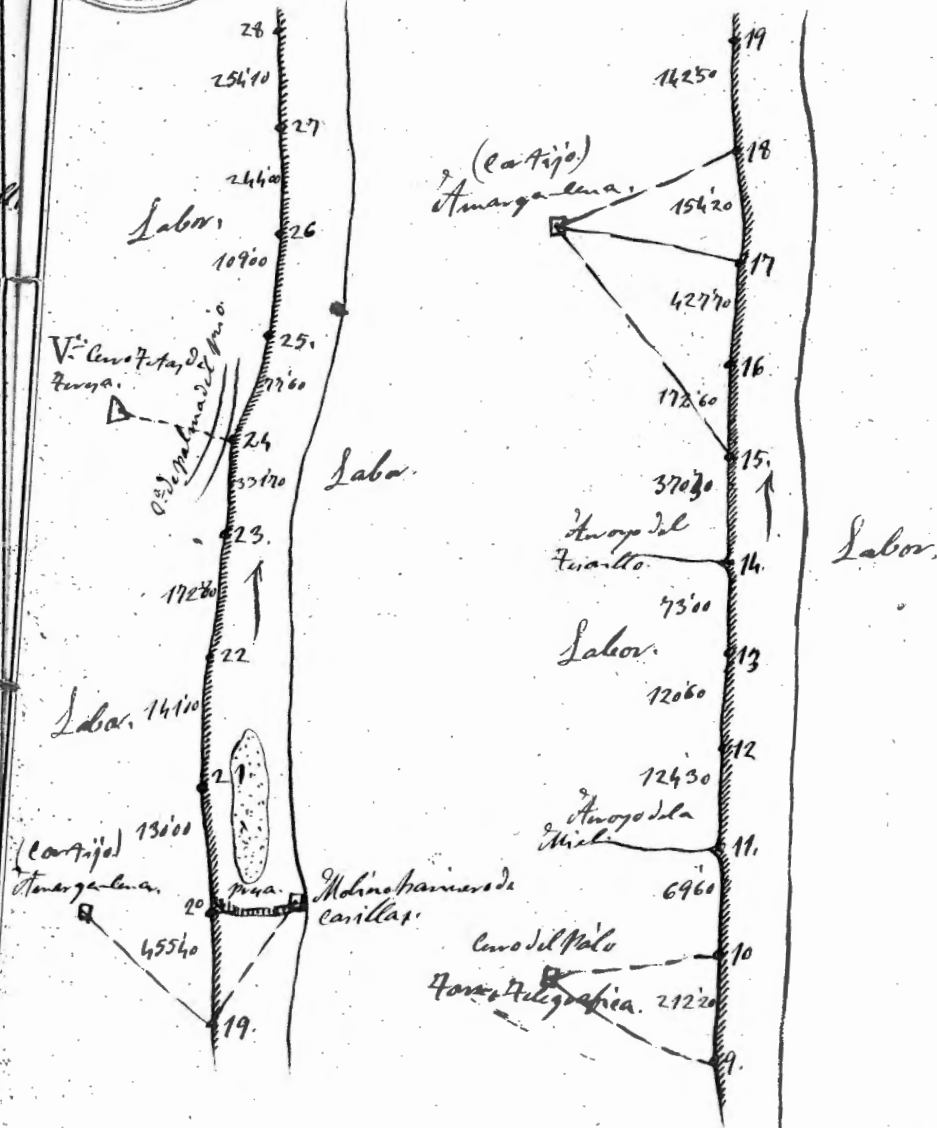 28
254'10
27
244'00
Labor.
26
109'00
25.
77'60
Vce Cerro Tetas de
24
331'70
Labor.
23.
172'80
22
Labor. 141'10
21.
130'00
(Cortijo)
Amargalena.
presa.
20
Molino harinero de
Casillas.
455'40
19.
19
142'50
18
(Cortijo)
Amargalena.
154'20
17
427'70
16
172'60
15.
Arroyo del
14.
Labor.
73'00
Labor.
13
120'60
12
124'30
Arroyo dela
Miel.
11.
69'60
Cerro del Palo
10
Torre Telegrafica. 212'20
9.